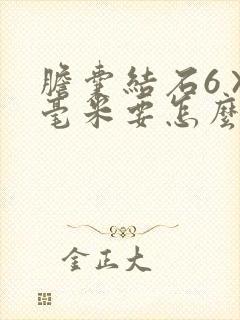 膽囊結石6
毫米要怎麼
金正大